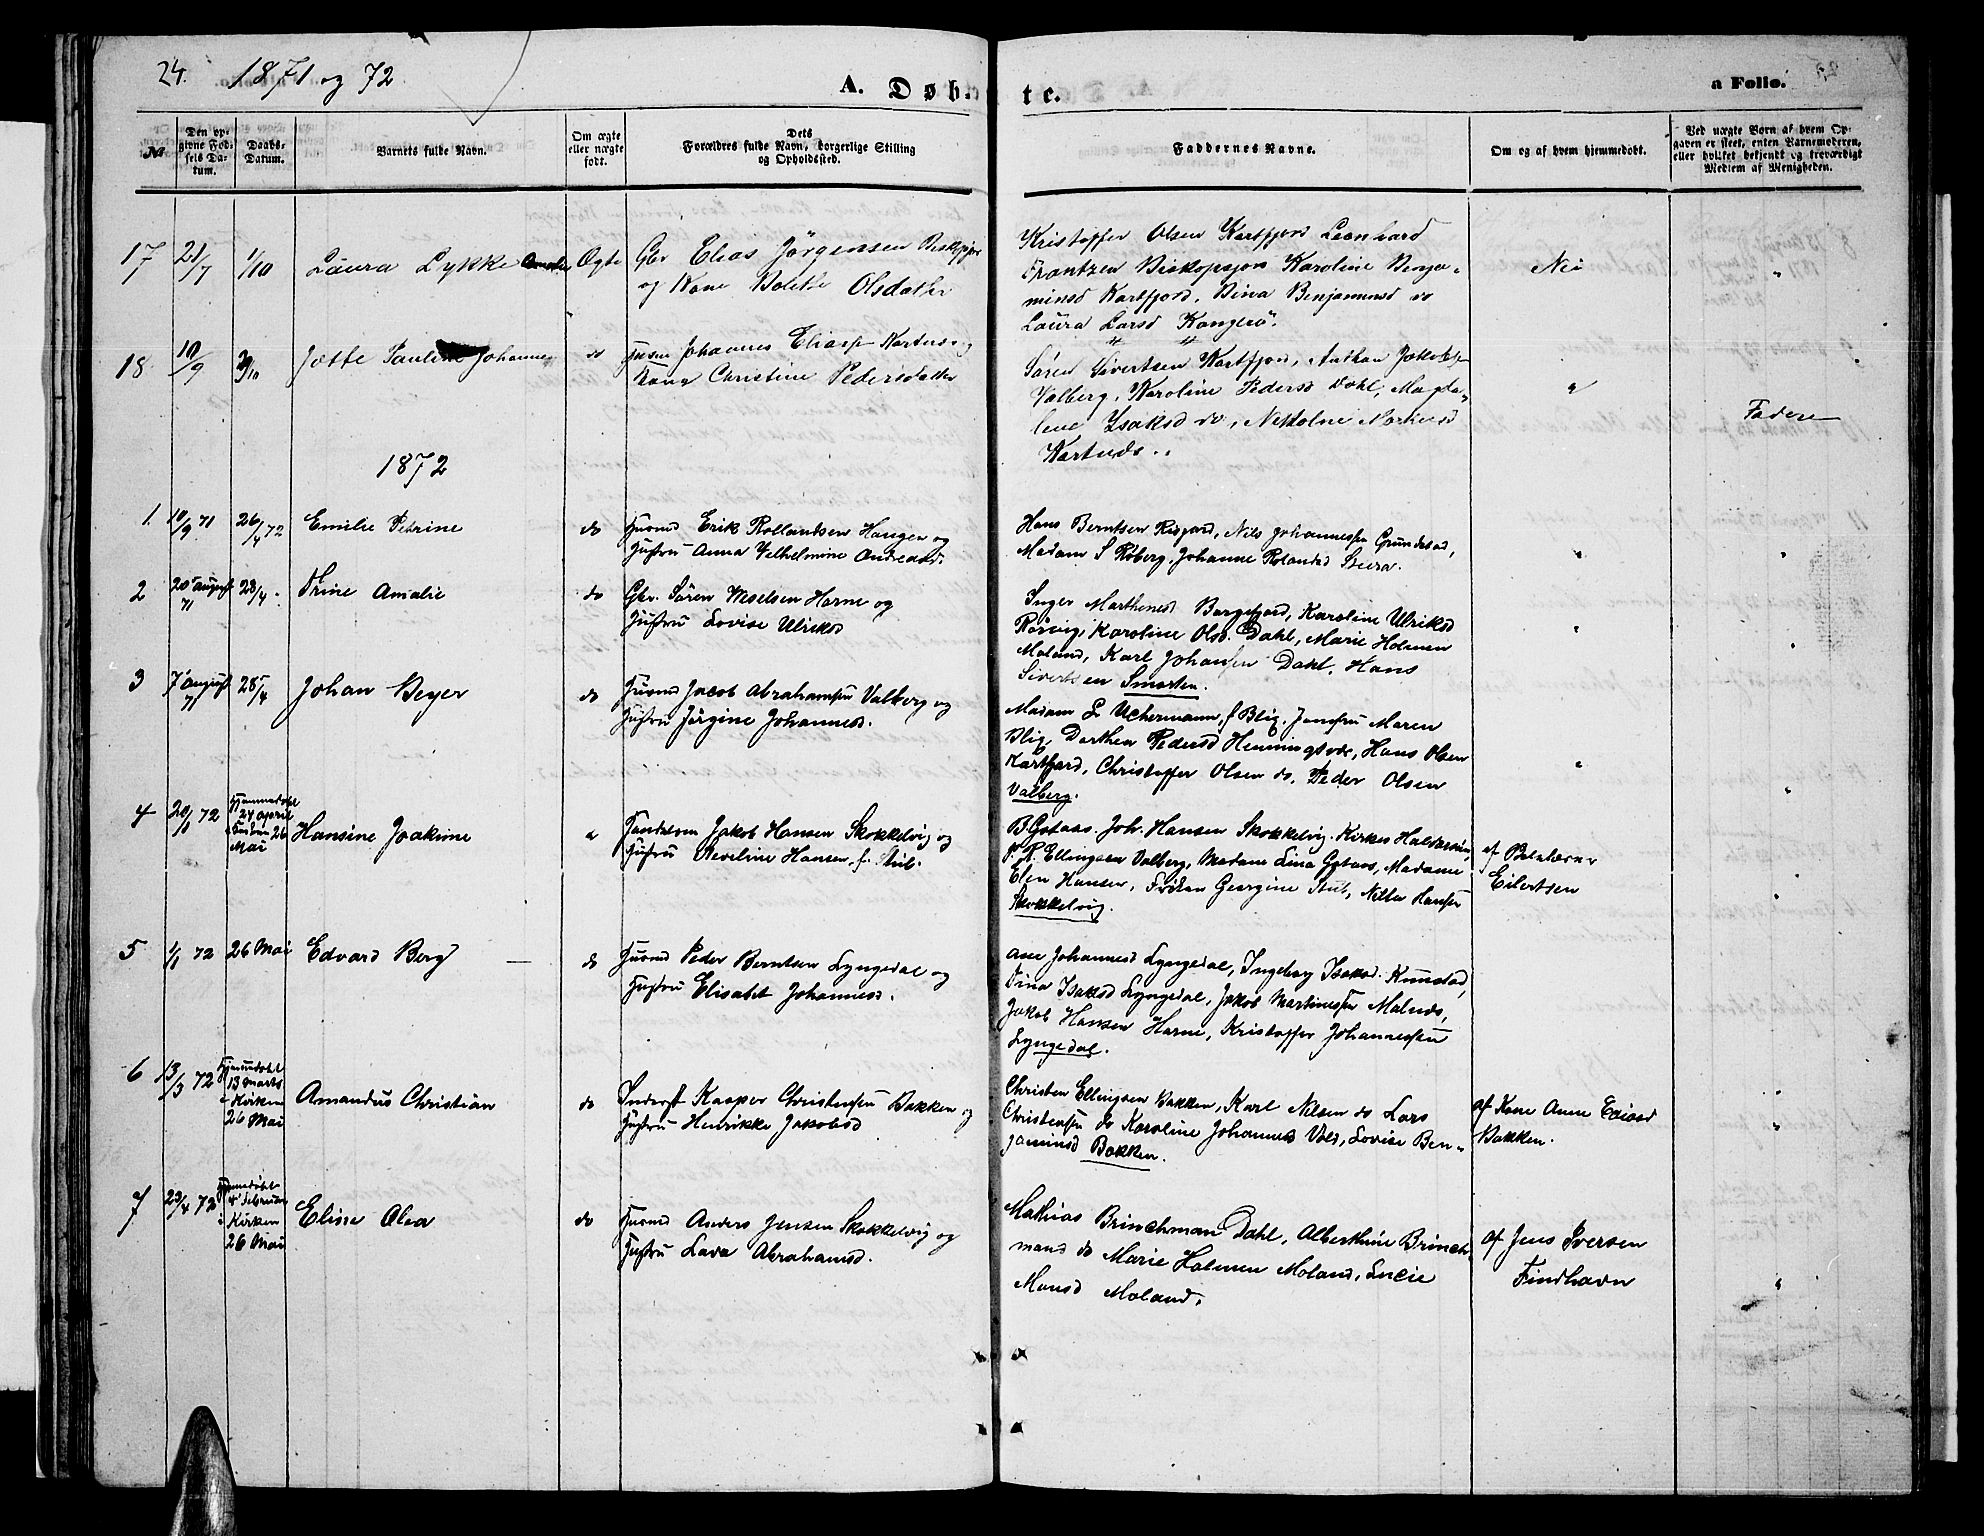 24. 1871 og 72
A. Døbte.
a Folio.
№
Den opgivne Fødsels Datum.
Daabs-Datum.
Barnets fulde Navn.
Om ægte eller uægte født.
Dets Forældres fulde Navn, borgerlige Stilling og Opholdssted.
Faddernes Navne.
Om og af hvem hjemmedøbt.
Ved uægte Børn af hvem Opgaven er skeet, enten Barnemoderen, eller hvilket bekjendt og troværdigt Medlem af Menigheden.
17 21/7 1/10 Laura Lykke Amalie Ægte Gbr Elias Jörgensen Biskopsjor
og Kone Bolette Olsdatter
Kristoffer Olsen Kartfjord Leonhard
Frantzen Biskopsjor Karoline Benja-
minsd Kartfjord, Dina Benjaminsd do
Laura Larsd Kangerö.
Nei "
18. 10/9 3/10 Jette Pauline Johanne do Johannes Eliasen og
Kone Christine Pedersdatter
Søren Sivertsen Kartfjord, Anthon Jakobsen
Valberg, Karoline Pedersd Dahl, Magda-
lene Isaksd do,
"
Fadere
1872
1. 10/9 71 26/4 72 Emilie Petrine do Huusmd Erik Rollandsen Haugen og
Hustru Anna Vilhelmine Andreasd.
Hans Berntsen Risjord, Nils Johannessen Grundstad,
Madam S Röberg, Johanne Rolandsd Steira.
" "
2 20 august 71 28/4. Trine Amalie do Gbr. Sören Weselsen Harne og
Hustru Lovise Ulriksd
Inger Marthinesd Borgefjord, Karoline Ulriksd
Rörvig, Karoline Olsd. Dahl, Marie Holmen
Moland, Karl Johansen Dahl, Hans
Sivertsen Smorten.
"
3 7 august 71 28/4 Johan Beyer do Huusmd Jacob Abrahamsen Valberg og
Hustru Jörgine Johannesd.
Madam L Uchermann, f Blix. Jomfru Maren
Blix, Dorthea Pedersd Henningsvær, Hans Olsen
Kartfjord, Christoffer Olsen do, Peder Olsen
Valberg.
" "
4 20/1 72 Hjemmedøbt
24 april
i Kirken 26
Mai
Hansine Joakime " Handelsm Jakob Hansen Skokkelvig og
Hustru Aveline Hansen, f.
B Gstaas. Joh. Hansen Skokkelvig. Kirkes
Ellingsen Valberg, Madame Lina Gstaas, Madame
Elen Hansen, Fröken Georgine
Skokkelvig.
af
Eilertsen
"
5 1/1 72 26 Mai Edvard Berg do Huusmd Peder Berntsen Lyngedal og
Hustru Elisabet Johannesd.
Ane Johannesd Lyngedal, Ingeborg Isaksd. Kunstad,
Trina Isaksd Lyngedal, Jakob Martinessen Malnes,
Jakob Hansen Harne, Kristoffer Johannessen
Lyngedal.
"
6 13/3 72 Hjemmedøbt
13 Marts
i Kirken
26 Mai
Amandus Christian do Inderst Kasper Christensen Bakken og
Hustru Henrikke Jakobsd
Christen Ellingsen Bakken, Karl Nilsen do Lars
Christensen do Karoline Johannesd Vold, Lovise Ben-
jaminsd Bakken.
af Kone Anne Eliasd
Bakken.
"
7 23/4 72 Hjemmedøbt
4 Februar
i Kirken
26 Mai
Eline Olea do Huusmd Anders Jensen Skokkelvig og
Hustru Lava Abrahamsd.
Mathias Brinchman Dahl, Alberthine Brinch
mand do Marie Holmen Moland, Lucie
Monsd Moland.
af Jens Iversen
Findhavn
"